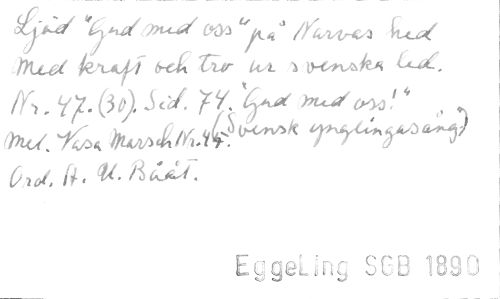 Ljöd "Gud med oss" på Narvas hed
Med kraft och tro ur svenska led.
Nr. 47. (30). Sid. 74. "Gud med oss!"
(Svensk ynglingasång)
Mel. Vasa Marsch Nr. 45.
Ord. A. U. Bååt.
EggeLing SGB 1890